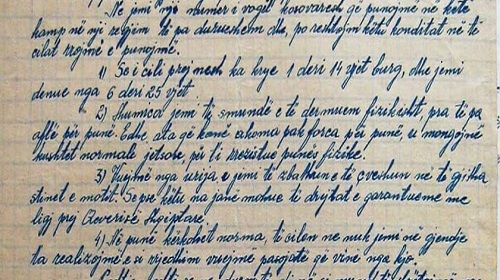 Ne jemi një numër i vogël kosovarësh që punojmë në këtë
kamp në një regjim të pa durueshem dhe, po reshtojm këtu konditat në të
cilat rrojmë e punojmë.
1) Se i cili prej nesh ka krye 1 deri 14 vjet burg, dhe jemi
denue nga 6 deri 25 vjet.
2) Shumica jemi të smundë e të dermuem fizikisht, pra të pa
aftë për punë. Edhe ata që kanë akoma pak forca për punë, u mongojnë
kushtet normale jetsore, për t'i rrezistue punës fizike.
3) Vuejmë nga urija e jemi të zbathun e të çveshun në të gjitha
stinet e motit. Sepse këtu na janë mohue të drejtat e garantueme me
ligj prej Qeverisë Shqiptare.
4) Në punë kërkohet norma, të cilen ne nuk jemi në gjendje
ta realizojmë e si rrjedhim vrejmë pasojat që vinë nga kjo.